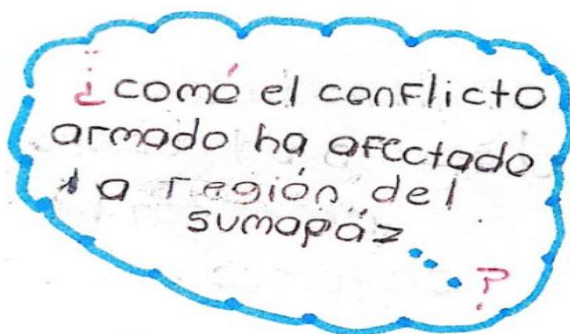 ¿comó el conflicto
armado ha afectado
la región del
sumapáz
...?